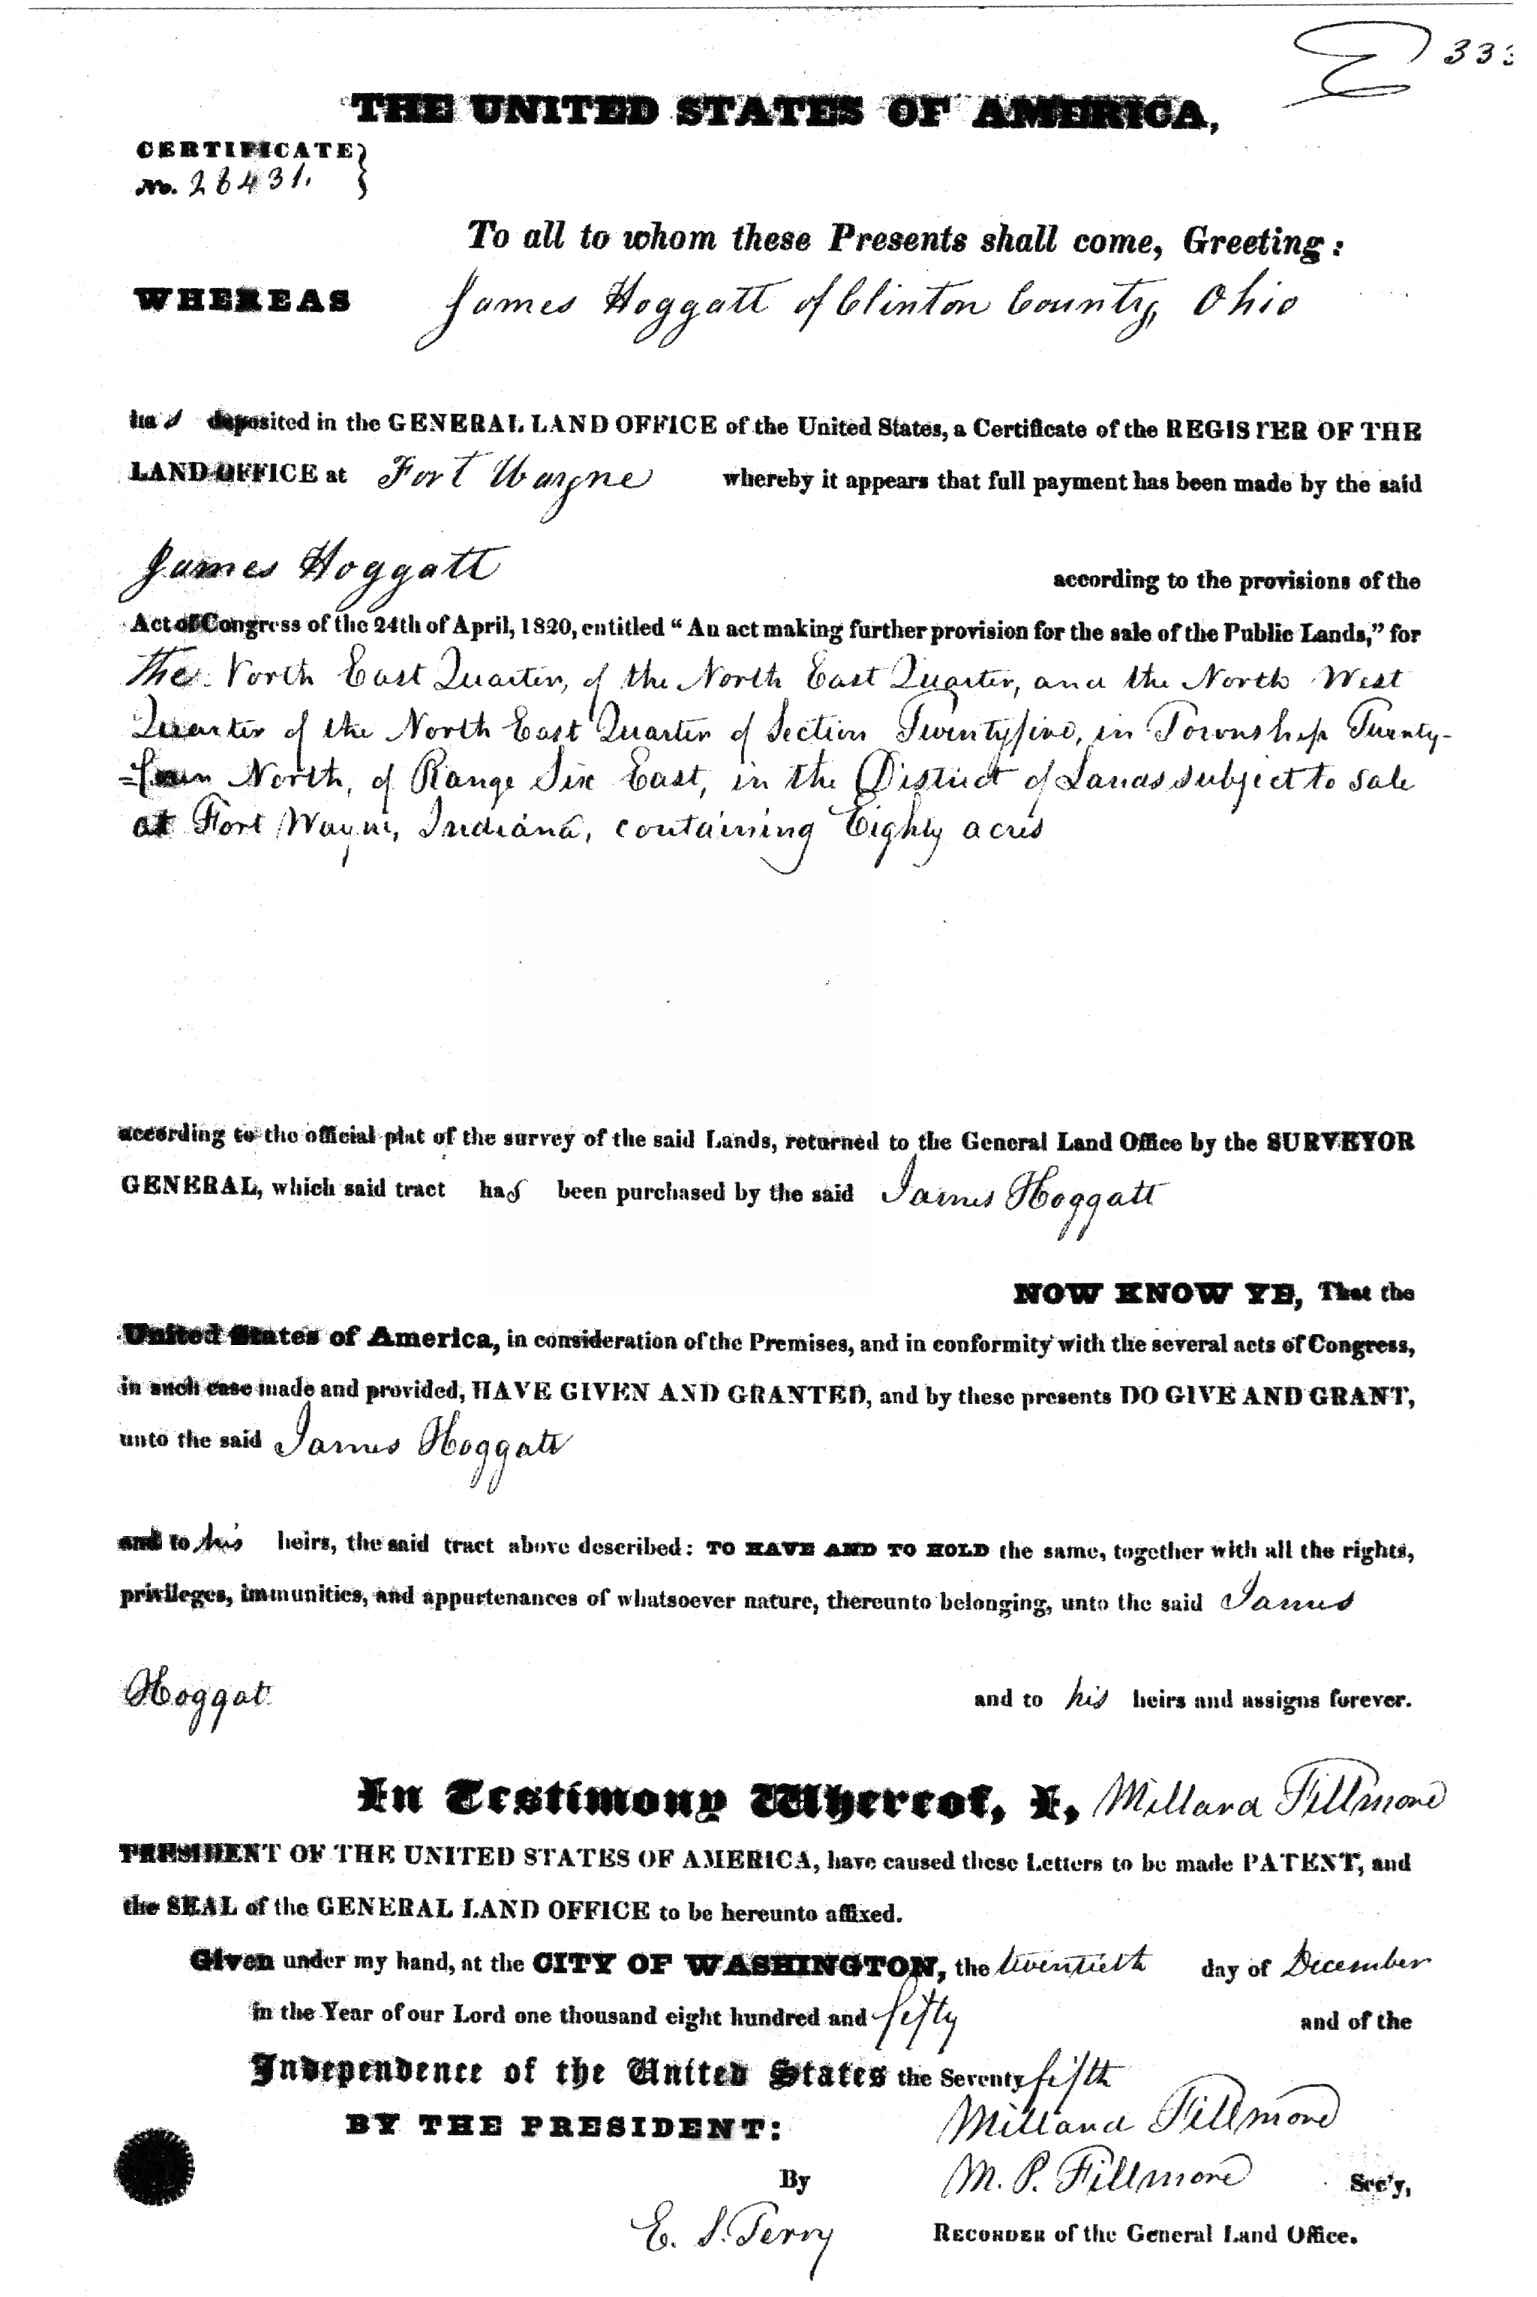 333
THE UNITED STATES OF AMERICA,
CERTIFICATE
No. 26431.
To all to whom these Presents shall come, Greeting:
WHEREAS James Hoggatt of Clinton County, Ohio
has deposited in the GENERAL LAND OFFICE of the United States, a Certificate of the REGISTER OF THE
LAND OFFICE at Fort Wayne whereby it appears that full payment has been made by the said
James Hoggatt according to the provisions of the
Act of Congress of the 24th of April, 1820, entitled "An act making further provision for the sale of the Public Lands," for
the North East Quarter, of the North East Quarter, and the North West
Quarter of the North East Quarter of Section Twentyfive, in Township Twenty-
=four North, of Range Six East, in the District of Lands subject to sale
at Fort Wayne, Indiana, containing Eighty acres
according to the official plat of the survey of the said Lands, returned to the General Land Office by the SURVEYOR
GENERAL, which said tract has been purchased by the said James Hoggatt
NOW KNOW YE, That the
United States of America, in consideration of the Premises, and in conformity with the several acts of Congress,
in such case made and provided, HAVE GIVEN AND GRANTED, and by these presents DO GIVE AND GRANT,
unto the said James Hoggatt
and to his heirs, the said tract above described: TO HAVE AND TO HOLD the same, together with all the rights,
privileges, immunities, and appurtenances of whatsoever nature, thereunto belonging, unto the said James
Hoggat and to his heirs and assigns forever.
In Testimony Whereof, I, Millard Fillmore
PRESIDENT OF THE UNITED STATES OF AMERICA, have caused these Letters to be made PATENT, and
the SEAL of the GENERAL LAND OFFICE to be hereunto affixed.
Given under my hand, at the CITY OF WASHINGTON, the twentieth day of December
in the Year of our Lord one thousand eight hundred and fifty and of the
Independence of the United States the Seventy fifth
BY THE PRESIDENT: Millard Fillmore
By M. P. Fillmore Sec'y,
E. S. Terry RECORDER of the General Land Office.